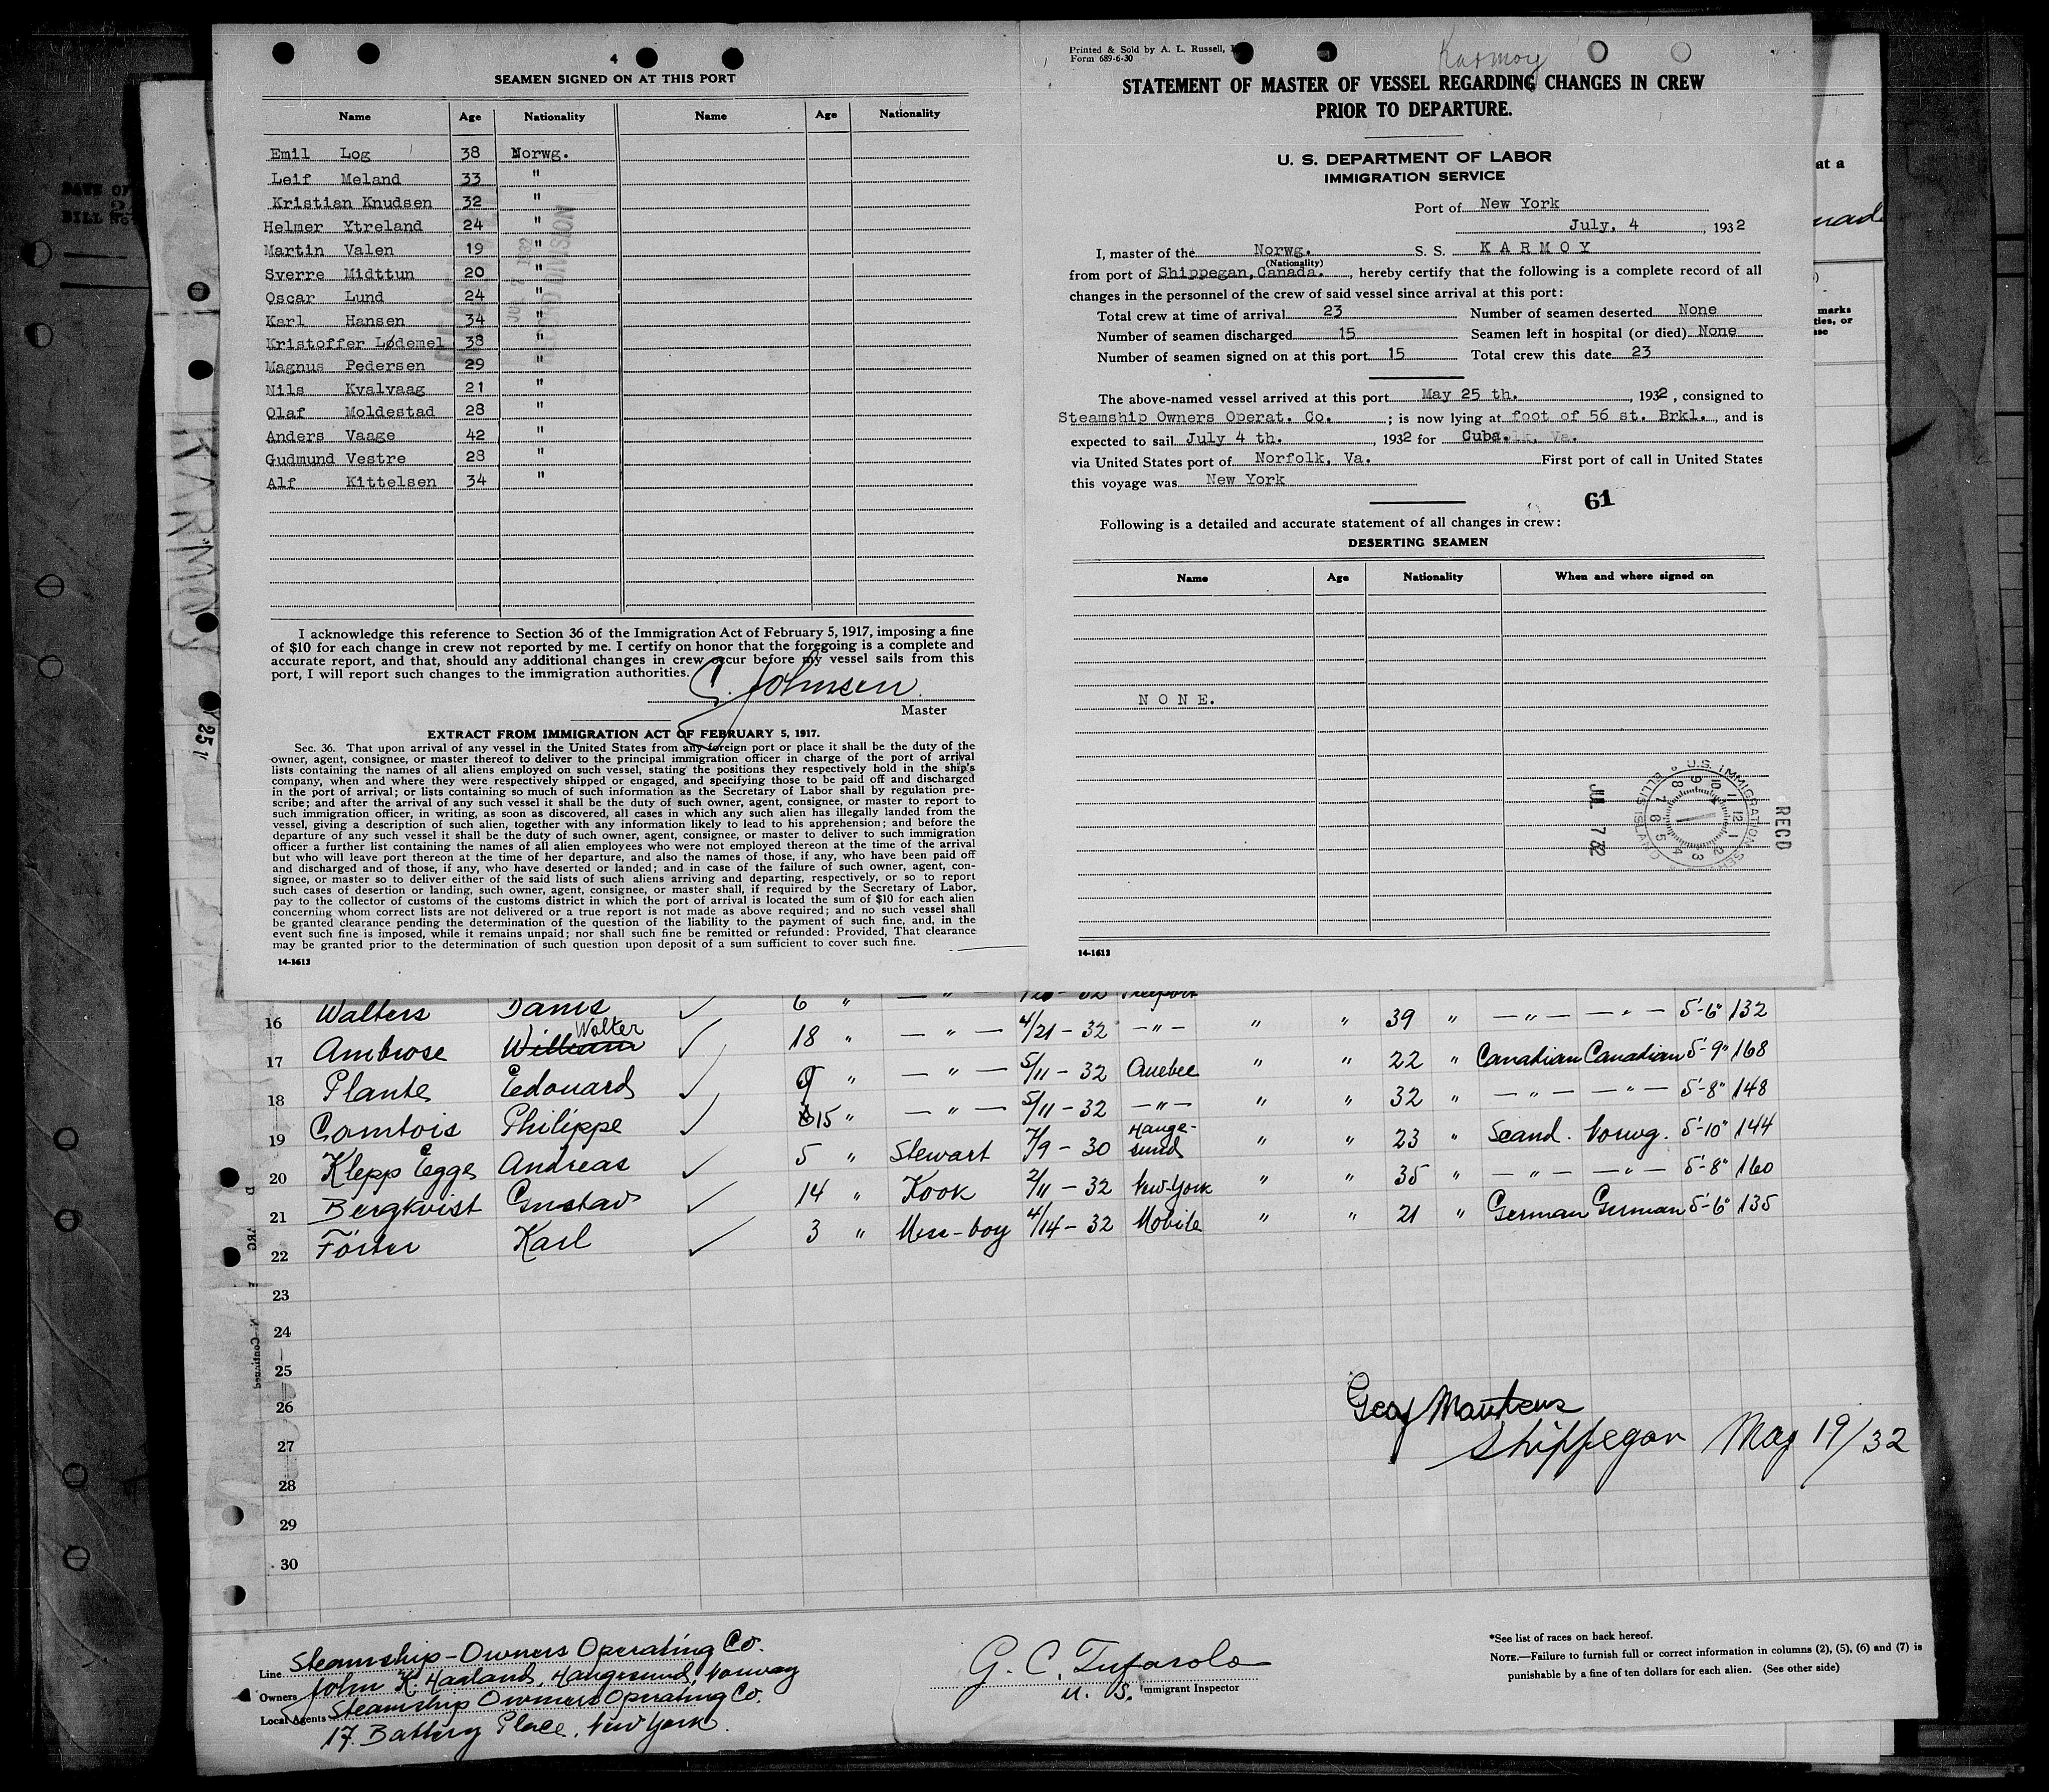 4
SEAMEN SIGNED ON AT THIS PORT
Name Age Nationality Name Age Nationality
Emil Log 38 Norwg.
Leif Meland 33 "
Kristian Knudsen 32 "
Helmer Ytreland 24 "
Martin Valen 19 "
Sverre Midttun 20 "
Oscar Lund 24 "
Karl Hansen 34 "
Kristoffer Lødemel 38 "
Magnus Pedersen 29 "
Nils Kvalvaag 21 "
Olaf Moldestad 28 "
Anders Vaage 42 "
Gudmund Vestre 28 "
Alf Kittelsen 34 "
I acknowledge this reference to Section 36 of the Immigration Act of February 5, 1917, imposing a fine
of $10 for each change in crew not reported by me. I certify on honor that the foregoing is a complete and
accurate report, and that, should any additional changes in crew occur before my vessel sails from this
port, I will report such changes to the immigration authorities.
C. Johnsen
Master
EXTRACT FROM IMMIGRATION ACT OF FEBRUARY 5, 1917.
Sec. 36. That upon arrival of any vessel in the United States from any foreign port or place it shall be the duty of the
owner, agent, consignee, or master thereof to deliver to the principal immigration officer in charge of the port of arrival
lists containing the names of all aliens employed on such vessel, stating the positions they respectively hold in the ship's
company, when and where they were respectively shipped or engaged, and specifying those to be paid off and discharged
in the port of arrival; or lists containing so much of such information as the Secretary of Labor shall by regulation pre-
scribe; and after the arrival of any such vessel it shall be the duty of such owner, agent, consignee, or master to report to
such immigration officer, in writing, as soon as discovered, all cases in which any such alien has illegally landed from the
vessel, giving a description of such alien, together with any information likely to lead to his apprehension; and before the
departure of any such vessel it shall be the duty of such owner, agent, consignee, or master to deliver to such immigration
officer a further list containing the names of all alien employees who were not employed thereon at the time of the arrival
but who will leave port thereon at the time of her departure, and also the names of those, if any, who have been paid off
and discharged and of those, if any, who have deserted or landed; and in case of the failure of such owner, agent, con-
signee, or master so to deliver either of the said lists of such aliens arriving and departing, respectively, or so to report
such cases of desertion or landing, such owner, agent, consignee, or master shall, if required by the Secretary of Labor,
pay to the collector of customs of the customs district in which the port of arrival is located the sum of $10 for each alien
concerning whom correct lists are not delivered or a true report is not made as above required; and no such vessel shall
be granted clearance pending the determination of the question of the liability to the payment of such fine, and, in the
event such fine is imposed, while it remains unpaid; nor shall such fine be remitted or refunded: Provided, That clearance
may be granted prior to the determination of such question upon deposit of a sum sufficient to cover such fine.
14-1613
Printed & Sold by A. L. Russell,
Form 689-6-30
Karmoy
STATEMENT OF MASTER OF VESSEL REGARDING CHANGES IN CREW
PRIOR TO DEPARTURE.
U. S. DEPARTMENT OF LABOR
IMMIGRATION SERVICE
Port of New York
July, 4, 1932
I, master of the Norwg. S. S. KARMOY
(Nationality)
from port of Shippegan, Canada., hereby certify that the following is a complete record of all
changes in the personnel of the crew of said vessel since arrival at this port:
Total crew at time of arrival 23 Number of seamen deserted None
Number of seamen discharged 15 Seamen left in hospital (or died) None
Number of seamen signed on at this port 15 Total crew this date 23
The above-named vessel arrived at this port May 25 th., 1932, consigned to
Steamship Owners Operat. Co.; is now lying at foot of 56 st. Brkl., and is
expected to sail July 4 th., 1932 for Cuba.
via United States port of Norfolk, Va. First port of call in United States
this voyage was New York
61
Following is a detailed and accurate statement of all changes in crew:
DESERTING SEAMEN
Name Age Nationality When and where signed on
NONE.
U.S. IMMIGRATION SERVICE ELLIS ISLAND
RECD
JUL 7 32
14-1613
KARMOY
16 Walters 6 " — " —
17 Ambrose William Walter 18 " — " — 4/21-32 — " — " " 39 " — " — — " — 5'-6" 132
18 Plante Edouard 9 " — " — 5/11-32 Quebec " " 22 " Canadian Canadian 5'-9" 168
19 Comtois Philippe 15 " — " — 5/11-32 — " — " " 32 " — " — — " — 5'-8" 148
20 Klepp Egge Andreas 5 " Stewart 7/9-30 Hauge-sund " " 23 " Scand. Norwg. 5'-10" 144
21 Bergkvist Gustav 14 " Kook 2/11-32 New-York " " 35 " — " — — " — 5'-8" 160
22 Förster Karl 3 " Mess-boy 4/14-32 Mobile " " 21 " German German 5'-6" 135
23
24
25
26
27
28
29
30
Shippegan May 19/32
Line Steamship-Owners Operating Co.
Owners John K. Haaland, Haugesund, Norway
Local Agents Steamship Owners Operating Co.
17 Battery Place, New York.
G. C. Tufarolo
U. S. Immigrant Inspector
*See list of races on back hereof.
NOTE.—Failure to furnish full or correct information in columns (2), (5), (6) and (7) is
punishable by a fine of ten dollars for each alien. (See other side)